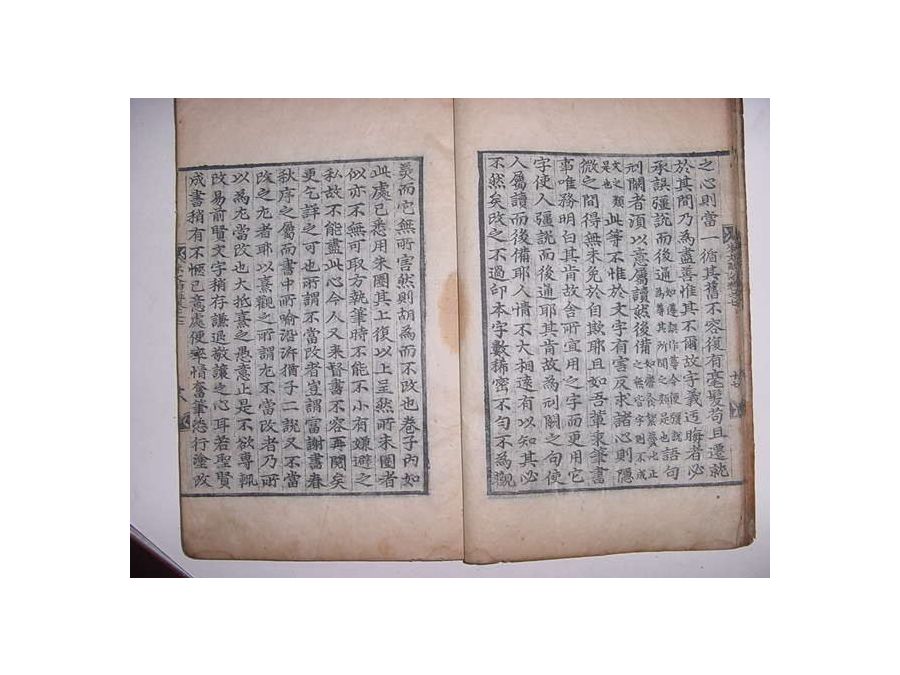 之心則當一循其舊不容復有毫髮苟且遷就
於其間乃為盡善惟其不爾故字義迃晦者必
承誤彊說而後通如遵誤作尊今便彊說為尊其所聞之類是也語句
刓闕者須以意屬讀然後備
之類是也此等不惟於文字有害反求諸心則隱
微之間得無未免於自欺耶且如吾輩秉筆書
事唯務明白其肯故舍所宜用之字而更用它
字使人彊說而後通耶其肯故為刓闕之句使
人屬讀而後備耶人情不大相遠有以知其必
不然矣改之不過印本字數稀密不勻不為觀
羙而它無所害然則胡為而不改也卷子內如
此處已悉用朱圈其上復以上呈然所朱圈者
似亦不無可取方執筆時不能不小有嫌避之
私故不能盡此心今人又來督書不容再閱矣
更乞詳之可也所謂不當改者豈謂富謝書春
秋序之屬而書中所喻沿泝猶子二說又不當
改之尤者耶以熹觀之所謂尤不當改者乃所
以為尤當改也大抵熹之愚意止是不欲專輒
改易前賢文字稍存謙退敬讓之心耳若聖賢
成書稍有不愜已意處便率情奮筆恣行塗改